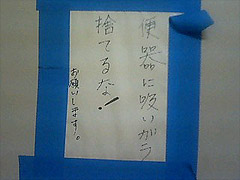 便器に吸いがら
捨てるな!
お願いします。